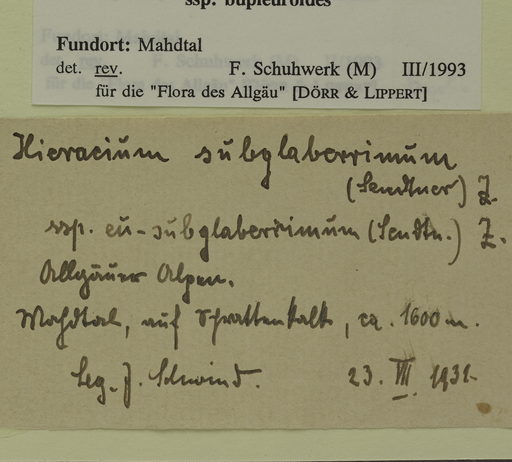 ssp. bupleuroides
Fundort: Mahdtal
det. rev. F. Schuhwerk (M) III/1993
für die "Flora des Allgäu" [DÖRR & LIPPERT]
Hieracium subglaberrimum
(Sendtner) Z.
ssp. eu-subglaberrimum (Sendtn.) Z.
Allgäuer Alpen.
Mahdtal, auf Schrattenkalk, ca. 1600 m.
leg. J. Schwind. 23. VII. 1931.